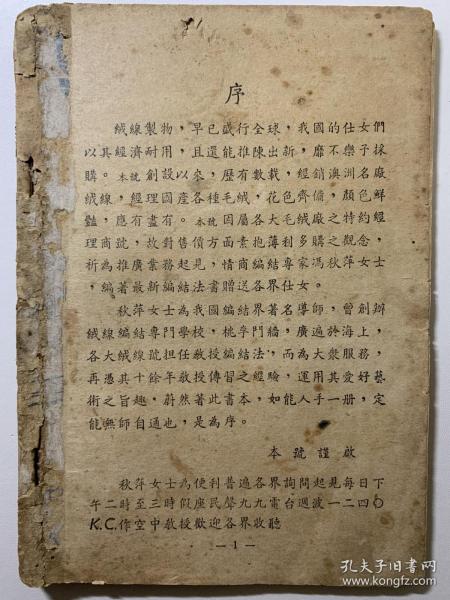 序
絨線製物，早已盛行全球，我國的仕女們
以其經濟耐用，且還能推陳出新，靡不樂採
購。本號創設以來，歷有數載，經銷澳洲名廠
絨線，經理國產各種毛絨，花色齊備，顏色鮮
豔，應有盡有。本號因屬各大毛絨廠之特約經
理商號，故對售價方面素抱薄利多購之觀念，
祈為推廣業務起見情商編結專家馮秋萍女士
編著最新編結法書贈送各界仕女。
秋萍女士為我國編結界著名導師，曾創辦
絨線編結專門學校，桃李門牆，廣遍海上
各大絨線號擔任教授編結法，而為大眾服務
再編其十餘年教授傳習之經驗，廣運其愛好藝
術之旨趣，蔚然著此書本，如能人手一冊，定
能無師自通也，是為序。
本號謹啟
秋萍女士為便利各界詢問起見每日下
午二時至三時座民聲九九電台週波一二四〇
K.C.作空中教授歡迎各界收聽
—1—
孔夫子旧书网
www.kongfz.com